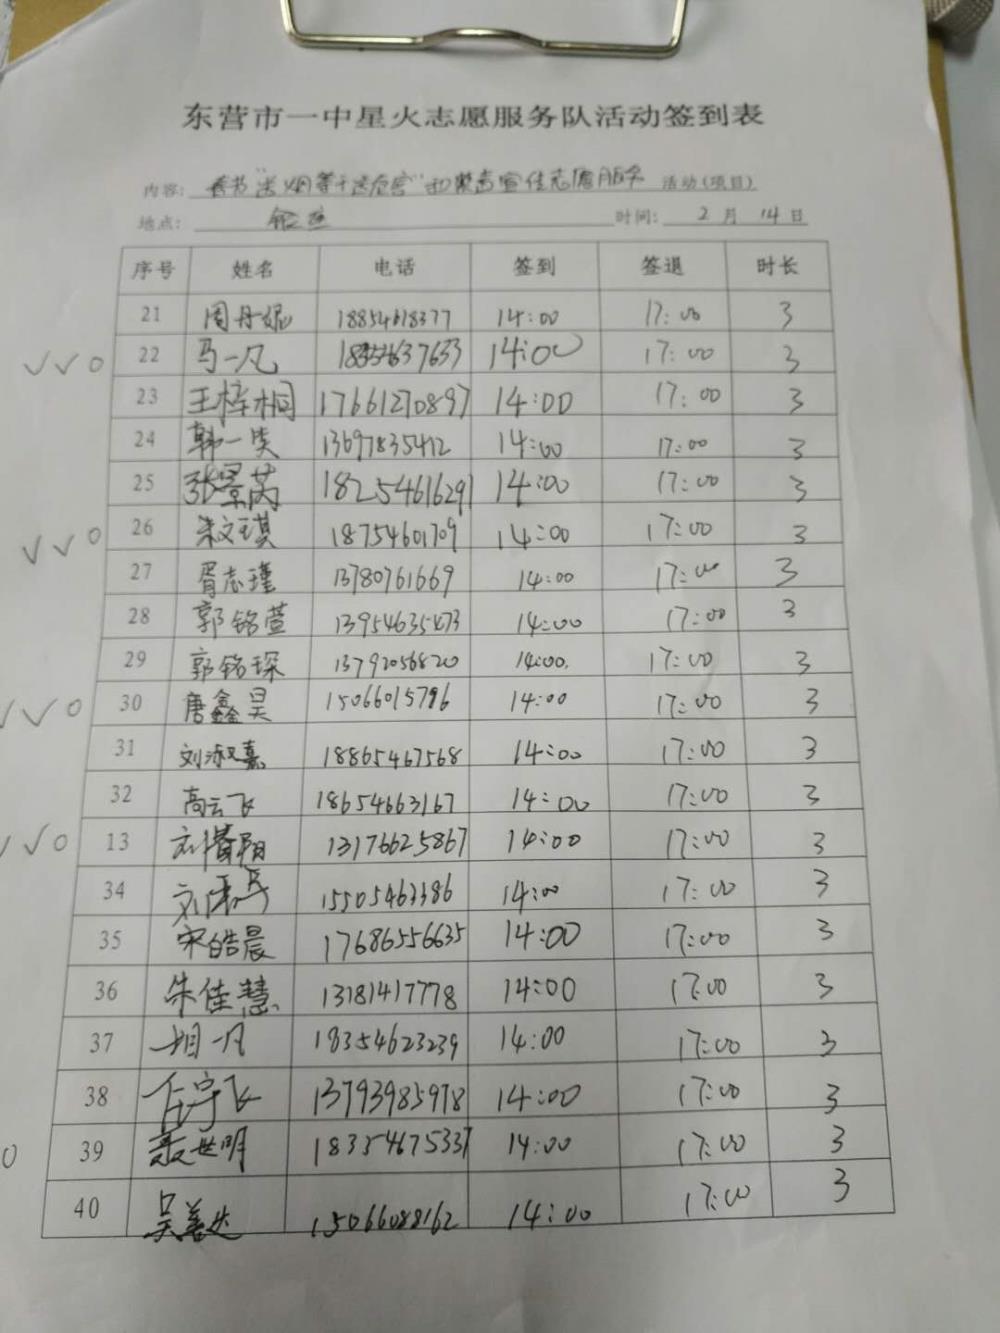 东营市一中星火志愿服务队活动签到表
内容: 活动(项目)
地点: 时间: 2 月 14 日
序号 姓名 电话 签到 签退 时长
21 周丹妮 18854618377 14:00 17:00 3
22 马一凡 14:00 17:00 3
23 王梓桐 17661270897 14:00 17:00 3
24 韩一 13697835412 14:00 17:00 3
25 张景芮 18254616291 14:00 17:00 3
26 朱文琪 18754601709 14:00 17:00 3
27 胥志瑾 13780761669 14:00 17:00 3
28 郭铭萱 14:00 17:00 3
29 郭铭琛 13792056820 14:00. 17:00 3
30 唐鑫昊 15066015796 14:00 17:00 3
31 刘淑嘉 18865467568 14:00 17:00 3
32 高云飞 18654663167 14:00 17:00 3
13 13176625867 14:00 17:00 3
34 15505463386 14:00 17:00 3
35 宋皓晨 17686556635 14:00 17:00 3
36 朱佳慧 13181417778 14:00 17:00 3
37 18354623239 14:00 17:00 3
38 任宇飞 13793985978 14:00 17:00 3
39 聂世明 18354675337 14:00 17:00 3
40 吴善达 15066088162 14:00 17:00 3